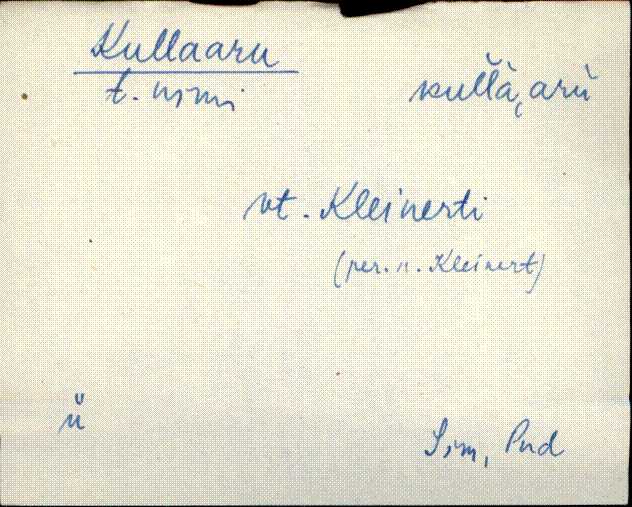 Kullaaru
t. nimi
kul̆l̆à˛arù
vt. Kleinerti
(per. n. Kleinert)
ü
Sim, Pud